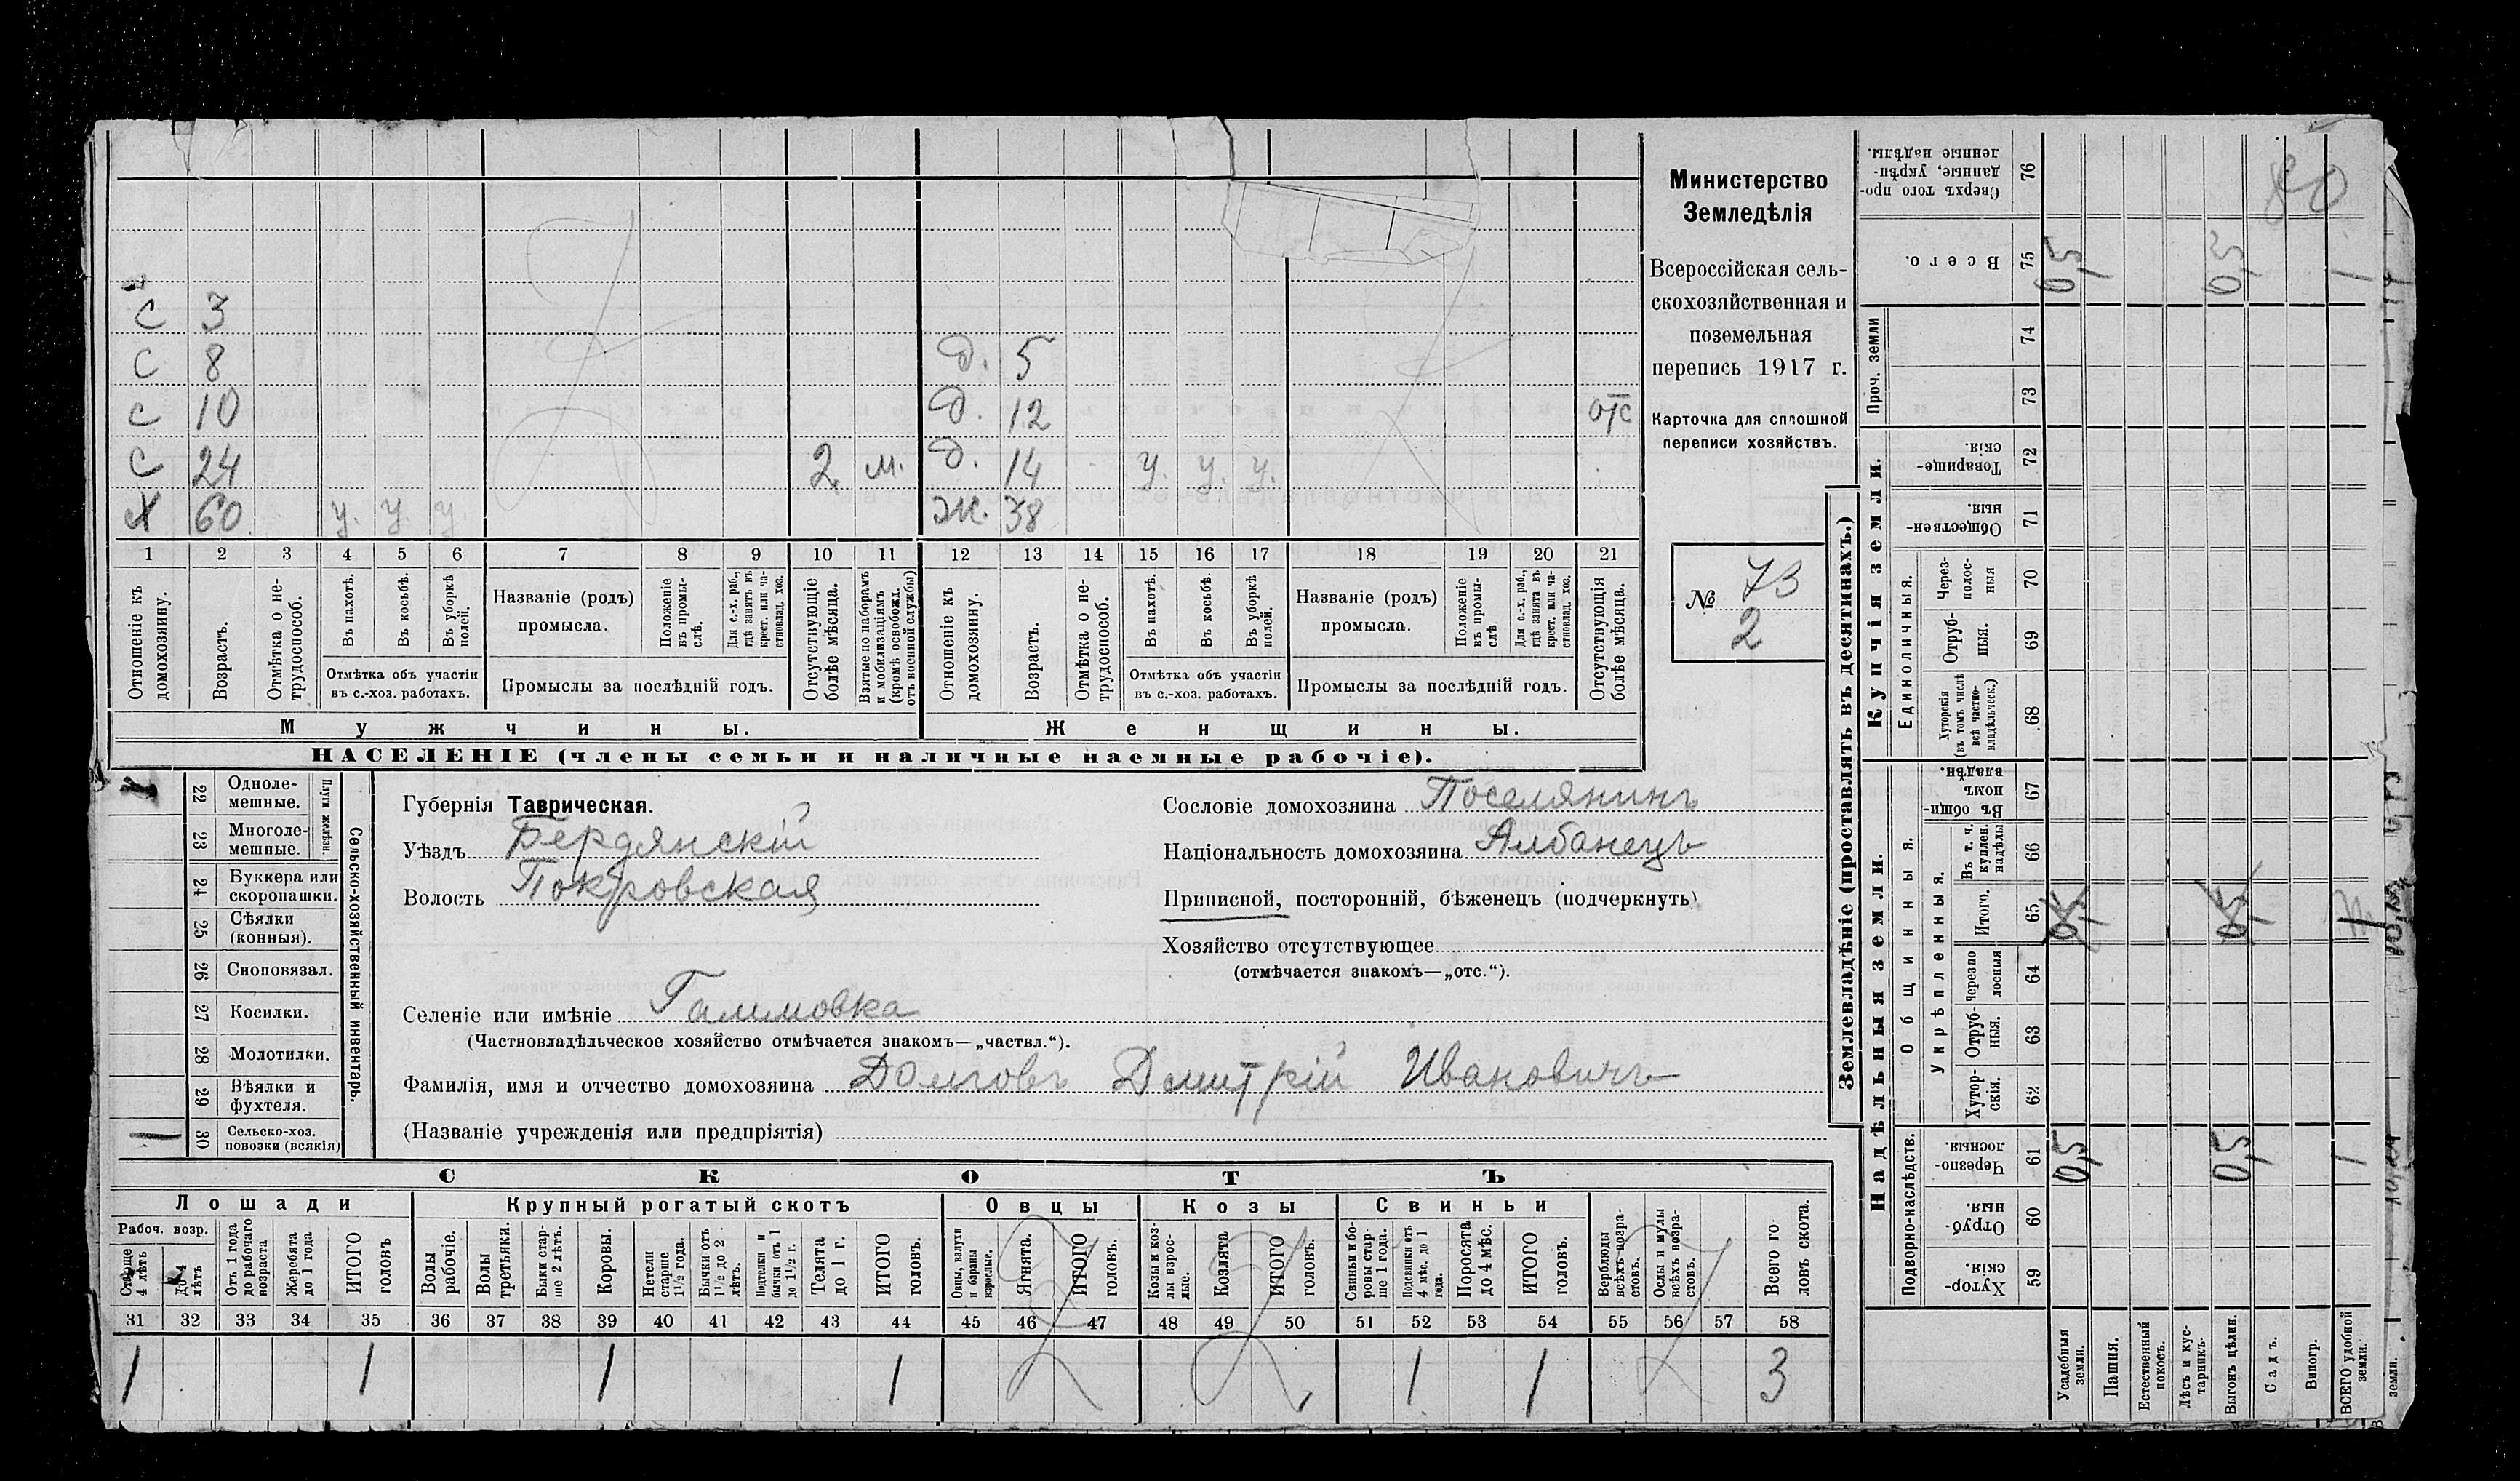 Министерство
Земледѣлія
Всероссійская сель-
скохозяйственная и
поземельная
перепись 1917 г.
Карточка для сплошной
переписи хозяйствъ.
№ 73
2
80
С 3
С 8 д. 5
С 10 д. 12 отс
С 24 2 м. д. 14 у. у. у.
Х 60 у. у. у. ж. 38
1 2 3 4 5 6 7 8 9 10 11 12 13 14 15 16 17 18 19 20 21
Отношеніе къ домохозяину.
Возрастъ.
Отмѣтка о не-трудоспособ.
Въ пахотѣ.
Въ косьбѣ.
Въ уборкѣ полей.
Отмѣтка объ участіи въ с.-хоз. работахъ.
Названіе (родъ) промысла.
Положеніе въ промы-слѣ.
Для с.-х. раб., гдѣ занятъ въ крест. или ча-стновлад. хоз.
Промыслы за послѣдній годъ.
Отсутствующіе болѣе мѣсяца.
Взятые по наборамъ и мобилизаціямъ (кромѣ освобожд. отъ военной службы)
Отношеніе къ домохозяину.
Возрастъ.
Отмѣтка о не-трудоспособ.
Въ пахотѣ.
Въ косьбѣ.
Въ уборкѣ полей.
Отмѣтка объ участіи въ с.-хоз. работахъ.
Названіе (родъ) промысла.
Положеніе въ промы-слѣ
Для с.-х. раб., гдѣ занята въ крест. или ча-стновлад. хоз.
Промыслы за послѣдній годъ.
Отсутствующія болѣе мѣсяца.
Мужчины. Женщины.
НАСЕЛЕНІЕ (члены семьи и наличные наемные рабочіе).
1 22 Одноле-мешные.
23 Многоле-мешные.
24 Буккера или скоропашки.
25 Сѣялки (конныя).
26 Сноповязал.
27 Косилки.
28 Молотилки.
29 Вѣялки и фухтеля.
1 30 Сельско-хоз. повозки (всякія)
Плуги желѣзн.
Сельско-хозяйственный инвентарь.
Губернія Таврическая.
Уѣздъ Бердянскій
Волость Покровская
Сословіе домохозяина Поселянинъ
Національность домохозяина Албанецъ
Приписной, посторонній, бѣженецъ (подчеркнуть)
Хозяйство отсутствующее
(отмѣчается знакомъ—„отс.“).
Селеніе или имѣніе Гаммовка
(Частновладѣльческое хозяйство отмѣчается знакомъ—„частвл.“).
Фамилія, имя и отчество домохозяина Долговъ Дмитрій Ивановичъ
(Названіе учрежденія или предпріятія)
СКОТЪ
Лошади Крупный рогатый скотъ Овцы Козы Свиньи
Рабоч. возр.
Старше 4 лѣтъ
До 4 лѣтъ
Отъ 1 года до рабочаго возраста
Жеребята до 1 года
ИТОГО головъ
Волы рабочіе.
Волы третьяки.
Быки стар-ше 2 лѣтъ.
Коровы.
Нетели старше 1½ года.
Бычки отъ 1½ до 2 лѣтъ.
Подтелки и бычки отъ 1 до 1½ г.
Телята до 1 г.
ИТОГО головъ.
Овцы, валухи и бараны взрослые.
Ягнята.
ИТОГО головъ.
Козы и коз-лы взрос-лые.
Козлята
ИТОГО головъ.
Свиньи и бо-ровы стар-ше 1 года.
Подсвинки отъ 4 мѣс. до 1 года.
Поросята до 4 мѣс.
ИТОГО головъ.
Верблюды всѣхъ возра-стовъ.
Ослы и мулы всѣхъ возра-стовъ.
Всего го-ловъ скота.
31 32 33 34 35 36 37 38 39 40 41 42 43 44 45 46 47 48 49 50 51 52 53 54 55 56 57 58
1 1 1 1 1 1 3
Землевладѣніе (проставлять въ десятинахъ.)
Надѣльныя земли. Купчія земли.
Проч. земли
Подворно-наслѣдств.
Общинныя.
Укрѣпленныя.
Единоличныя.
Сверхъ того про-данные, укрѣп-ленные надѣлы. 76
Всего. 75 0,5 0,5 1
74
73
Товарище-скія. 72
Обществен-ныя. 71
Через-полос-ныя 70
Отруб-ныя. 69
Хуторскія (въ томъ числѣ всѣ частно-владѣльческ.) 68
Въ общин-номъ владѣн. 67
Въ т. ч. куплен. надѣлы 66
Итого. 65
Черезпо-лосныя 64
Отруб-ныя. 63
Хутор-скія. 62
Черезпо-лосныя. 61 0,5 0,5 1
Отруб-ныя. 60
Хутор-скія. 59
Усадебныя земли.
Пашня.
Естественный покосъ.
Лѣсъ и кус-тарникъ.
Выгонъ цѣлин.
Садъ.
Виногр.
ВСЕГО удобной земли.
земли.